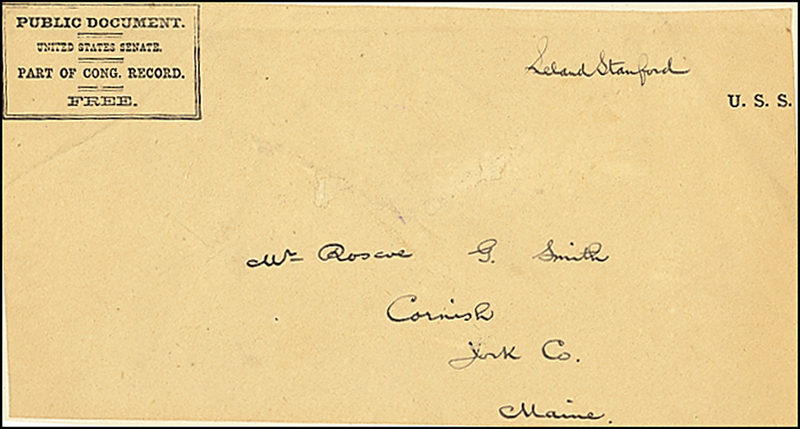 PUBLIC DOCUMENT.
UNITED STATES SENATE.
PART OF CONG. RECORD.
FREE.
Leland Stanford
U. S. S.
Mr Roscoe G. Smith
Cornish
York Co.
Maine.